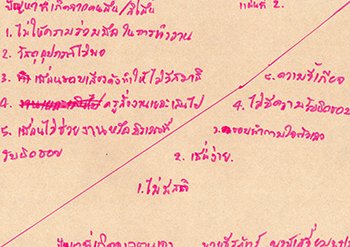 ปัญหาที่เกิดจากคนอื่น/สิ่งอื่น
แผ่นที่ 2.
1. ไม่ให้ความร่วมมือ ในการทำงาน
2. วัสดุอุปกรณ์ไม่พอ
3. เพื่อนชอบเสียงดังทำให้ไม่มีสมาธิ
4. ครูสั่งงานเยอะเกินไป
5. เพื่อนไม่ช่วยงานหรือ
รับผิดชอบ
5. ความขี้เกียจ
4. ไม่มีความรับผิดชอบ
3. ชอบทำตามใจตัวเอง
2. เหนื่อยง่าย.
1. ไม่มีสติ